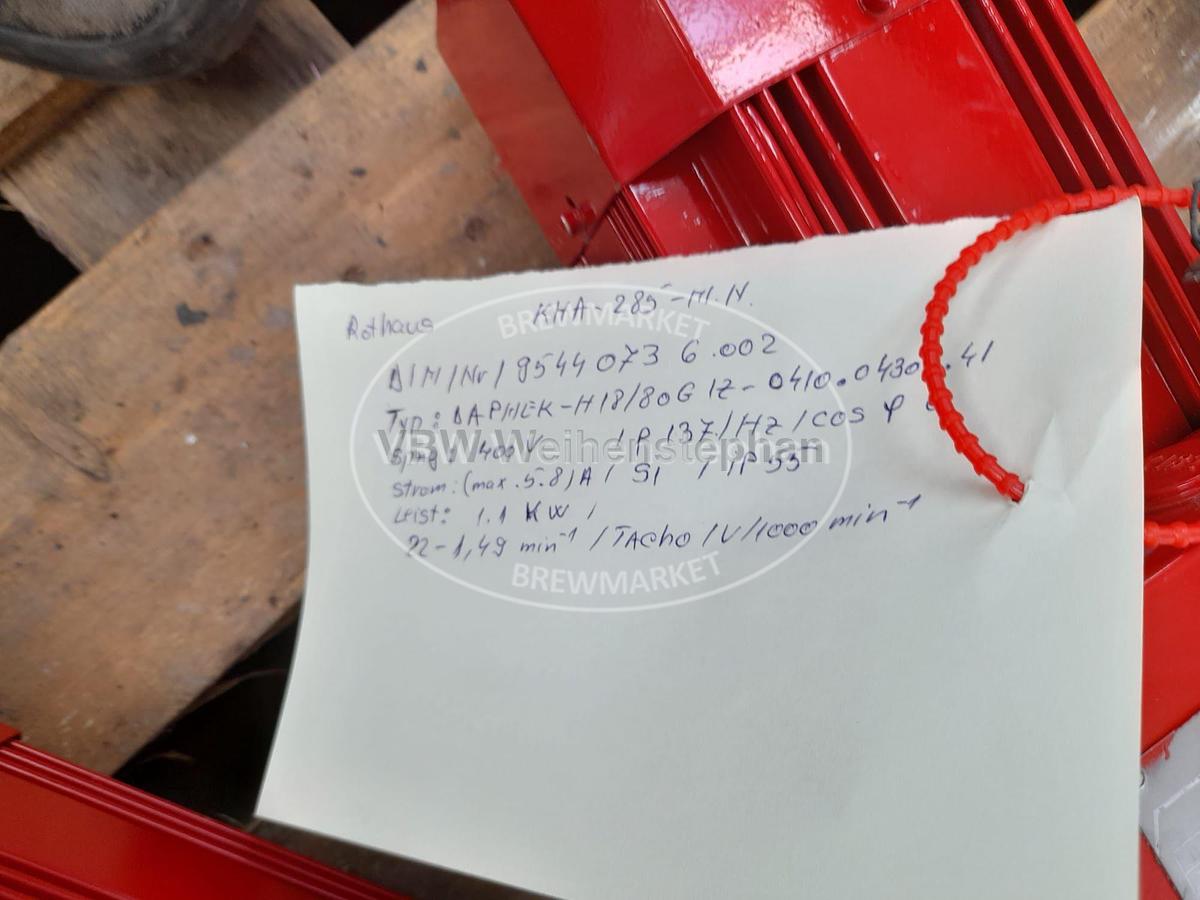 Rothaus KHA-285-M.N.
BREWMARKET
DIM/Nr/9544073 6.002
Typ: DAPHEK-H18/80G1Z-0410.0430 .41
Spng: 400V / P 137/Hz/cos φ
VBW Weihenstephan
Strom: (max.5.8)A / S1 / iP 55
Leist: 1.1 KW /
22-1,49 min⁻¹ /TAcho/V/1000 min⁻¹
BREWMARKET